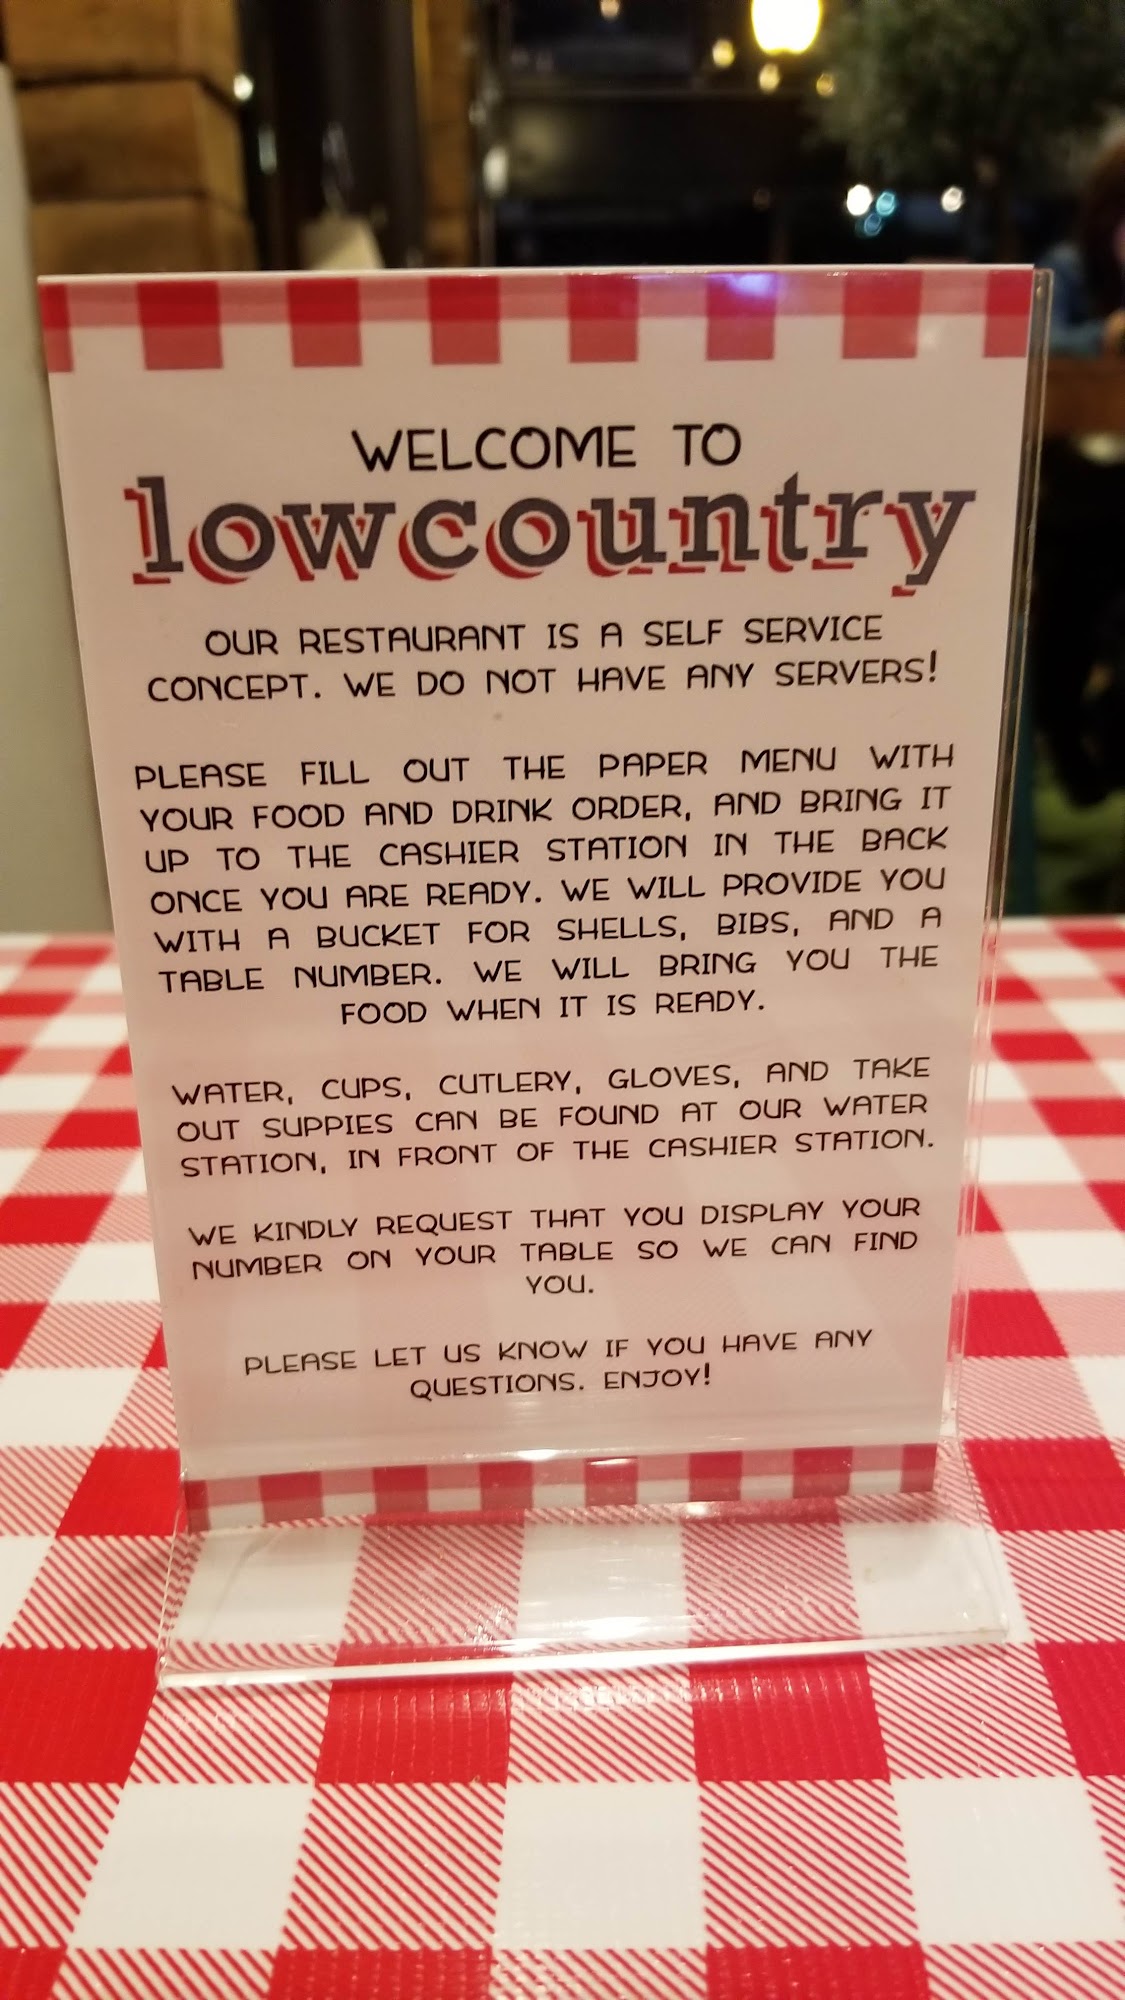 WELCOME TO
lowcountry
OUR RESTAURANT IS A SELF SERVICE
CONCEPT. WE DO NOT HAVE ANY SERVERS!
PLEASE FILL OUT THE PAPER MENU WITH
YOUR FOOD AND DRINK ORDER, AND BRING IT
UP TO THE CASHIER STATION IN THE BACK
ONCE YOU ARE READY. WE WILL PROVIDE YOU
WITH A BUCKET FOR SHELLS, BIBS, AND A
TABLE NUMBER. WE WILL BRING YOU THE
FOOD WHEN IT IS READY.
WATER, CUPS, CUTLERY, GLOVES, AND TAKE
OUT SUPPIES CAN BE FOUND AT OUR WATER
STATION, IN FRONT OF THE CASHIER STATION.
WE KINDLY REQUEST THAT YOU DISPLAY YOUR
NUMBER ON YOUR TABLE SO WE CAN FIND
YOU.
PLEASE LET US KNOW IF YOU HAVE ANY
QUESTIONS. ENJOY!